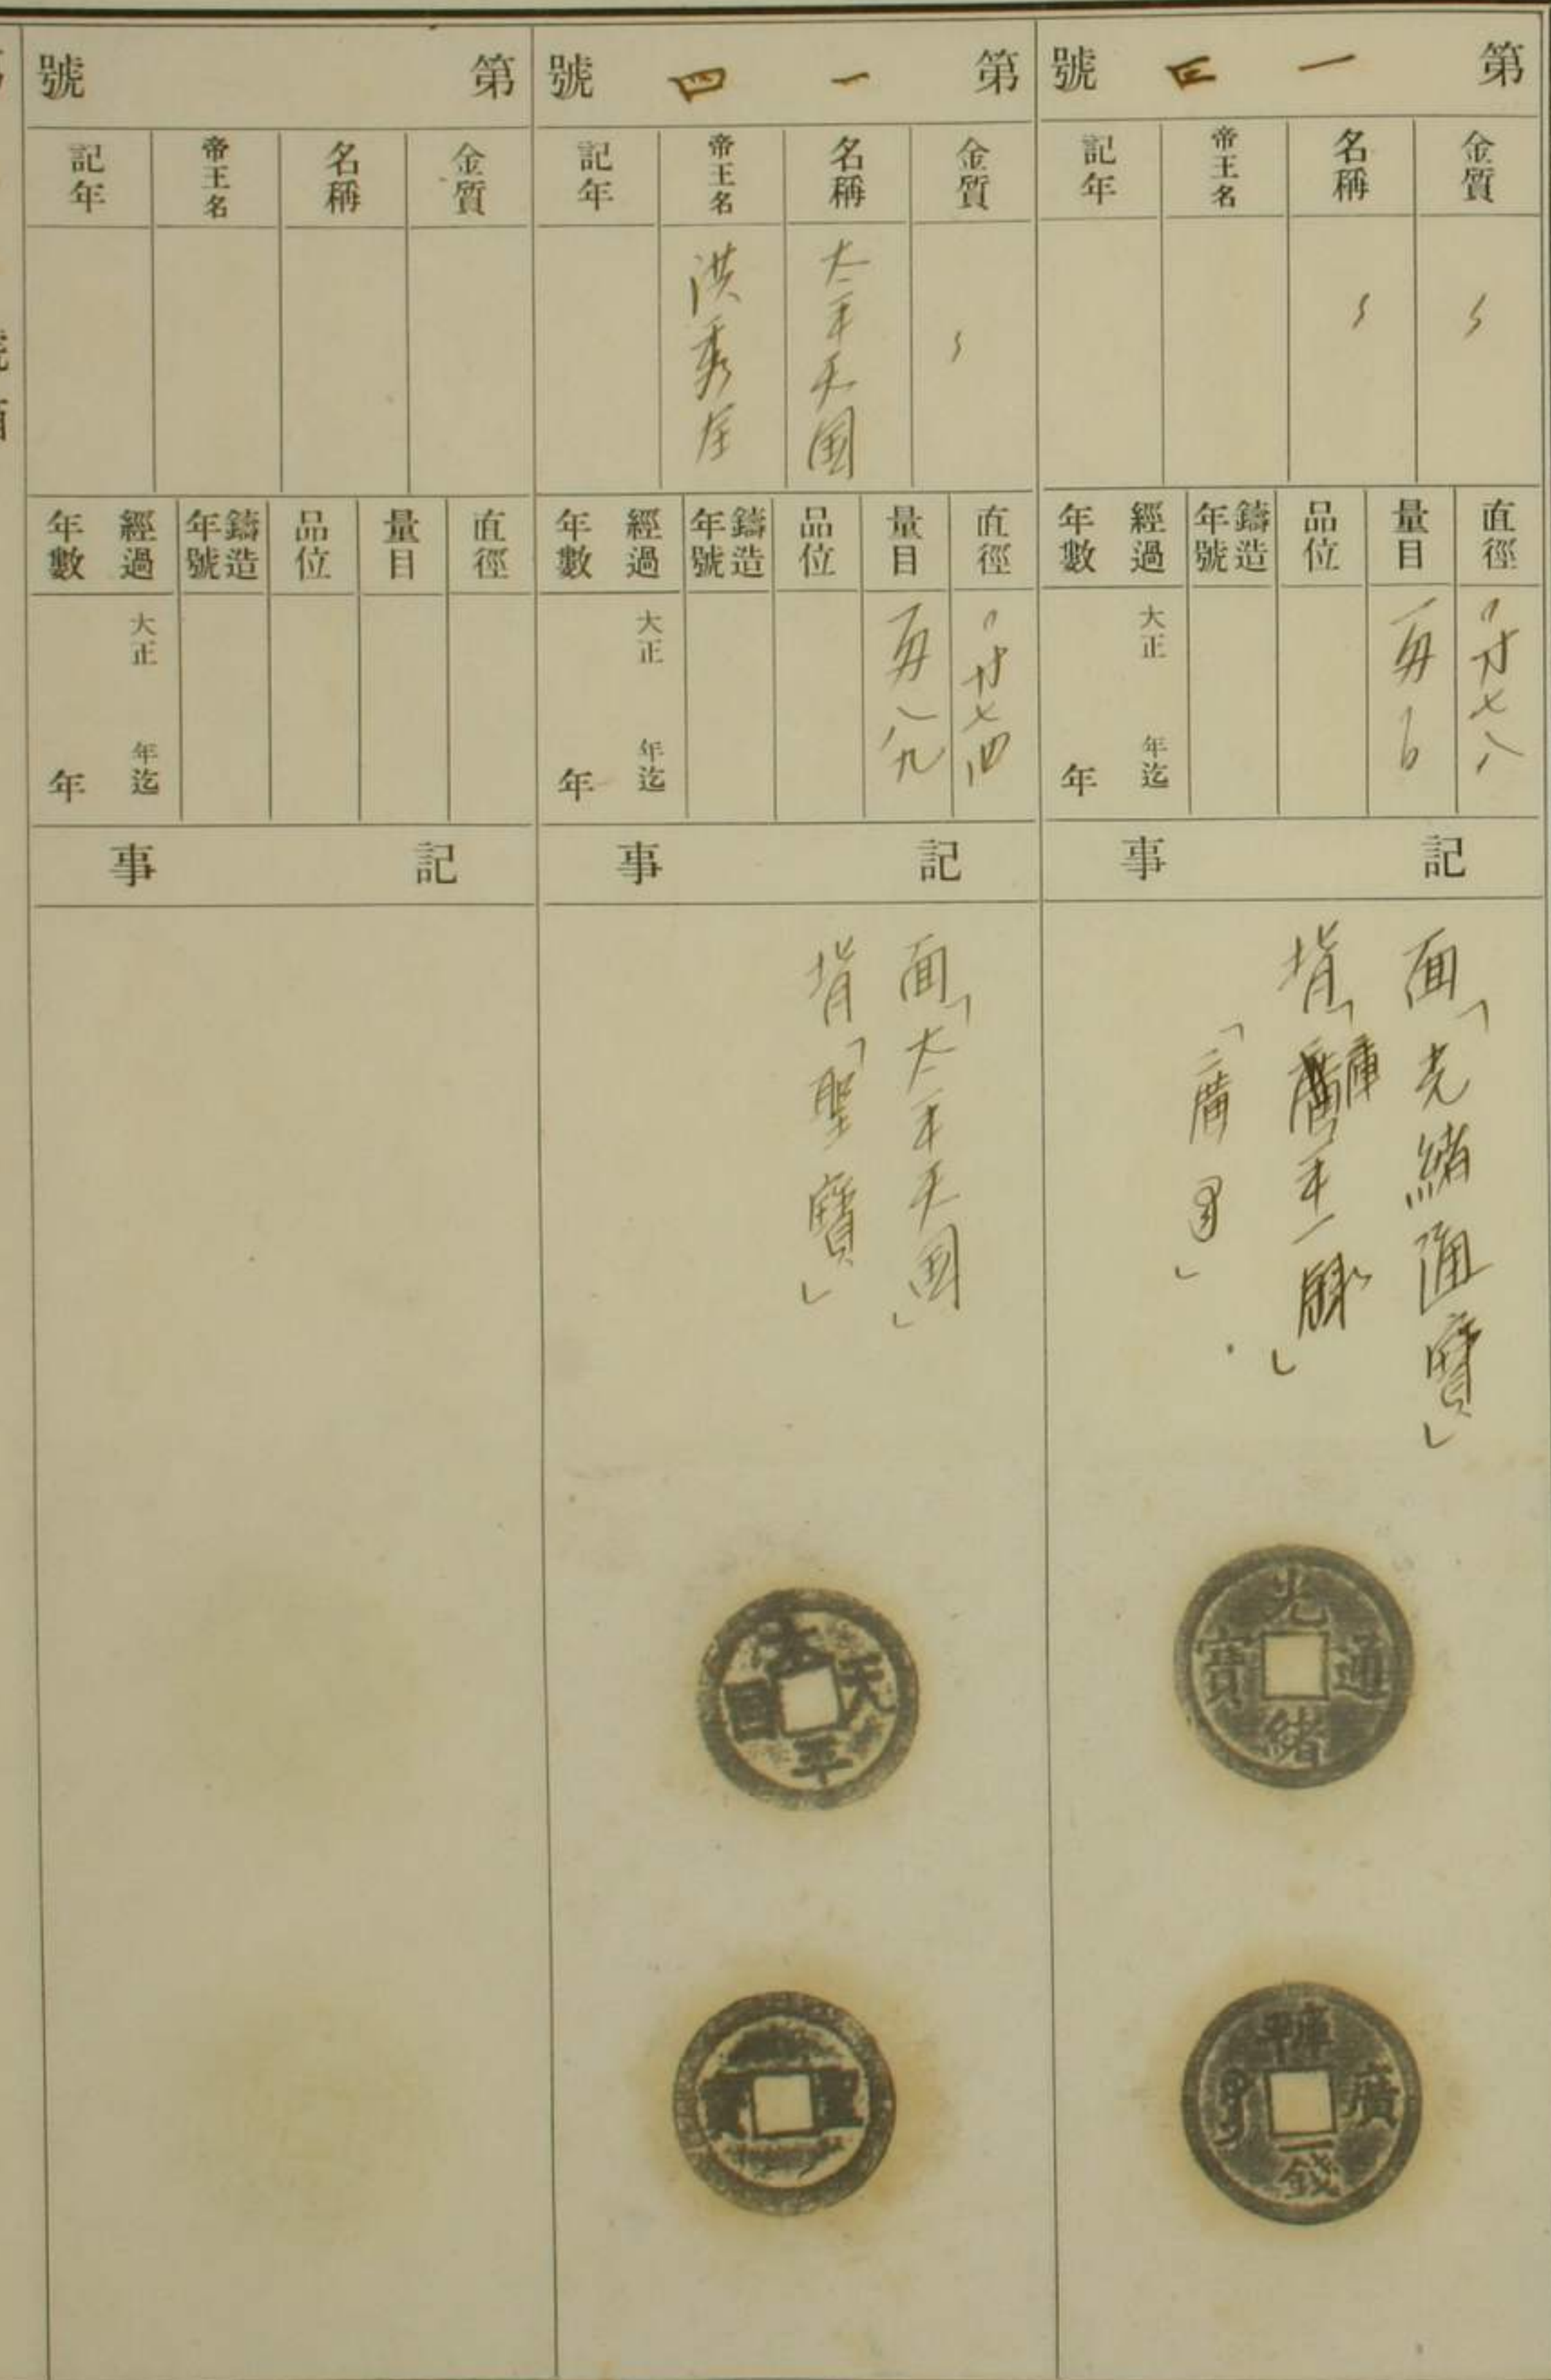 第一三號
金質
名稱
帝王名
記年
直徑
〃寸七八
量目
一匁
品位
鑄造年號
經過年數
大正 年迄
年
記事
面「光緒通寶」
背「庫平一錢」
「廣
光緒通寶
庫平一錢廣
第一四號
金質
名稱
太平天国
帝王名
洪秀全
記年
直徑
〃寸七四
量目
匁八九
品位
鑄造年號
經過年數
大正 年迄
年
記事
面「太平天國」
背「聖寶」
太平天囯
聖寶
第 號
金質
名稱
帝王名
記年
直徑
量目
品位
鑄造年號
經過年數
大正 年迄
年
記事